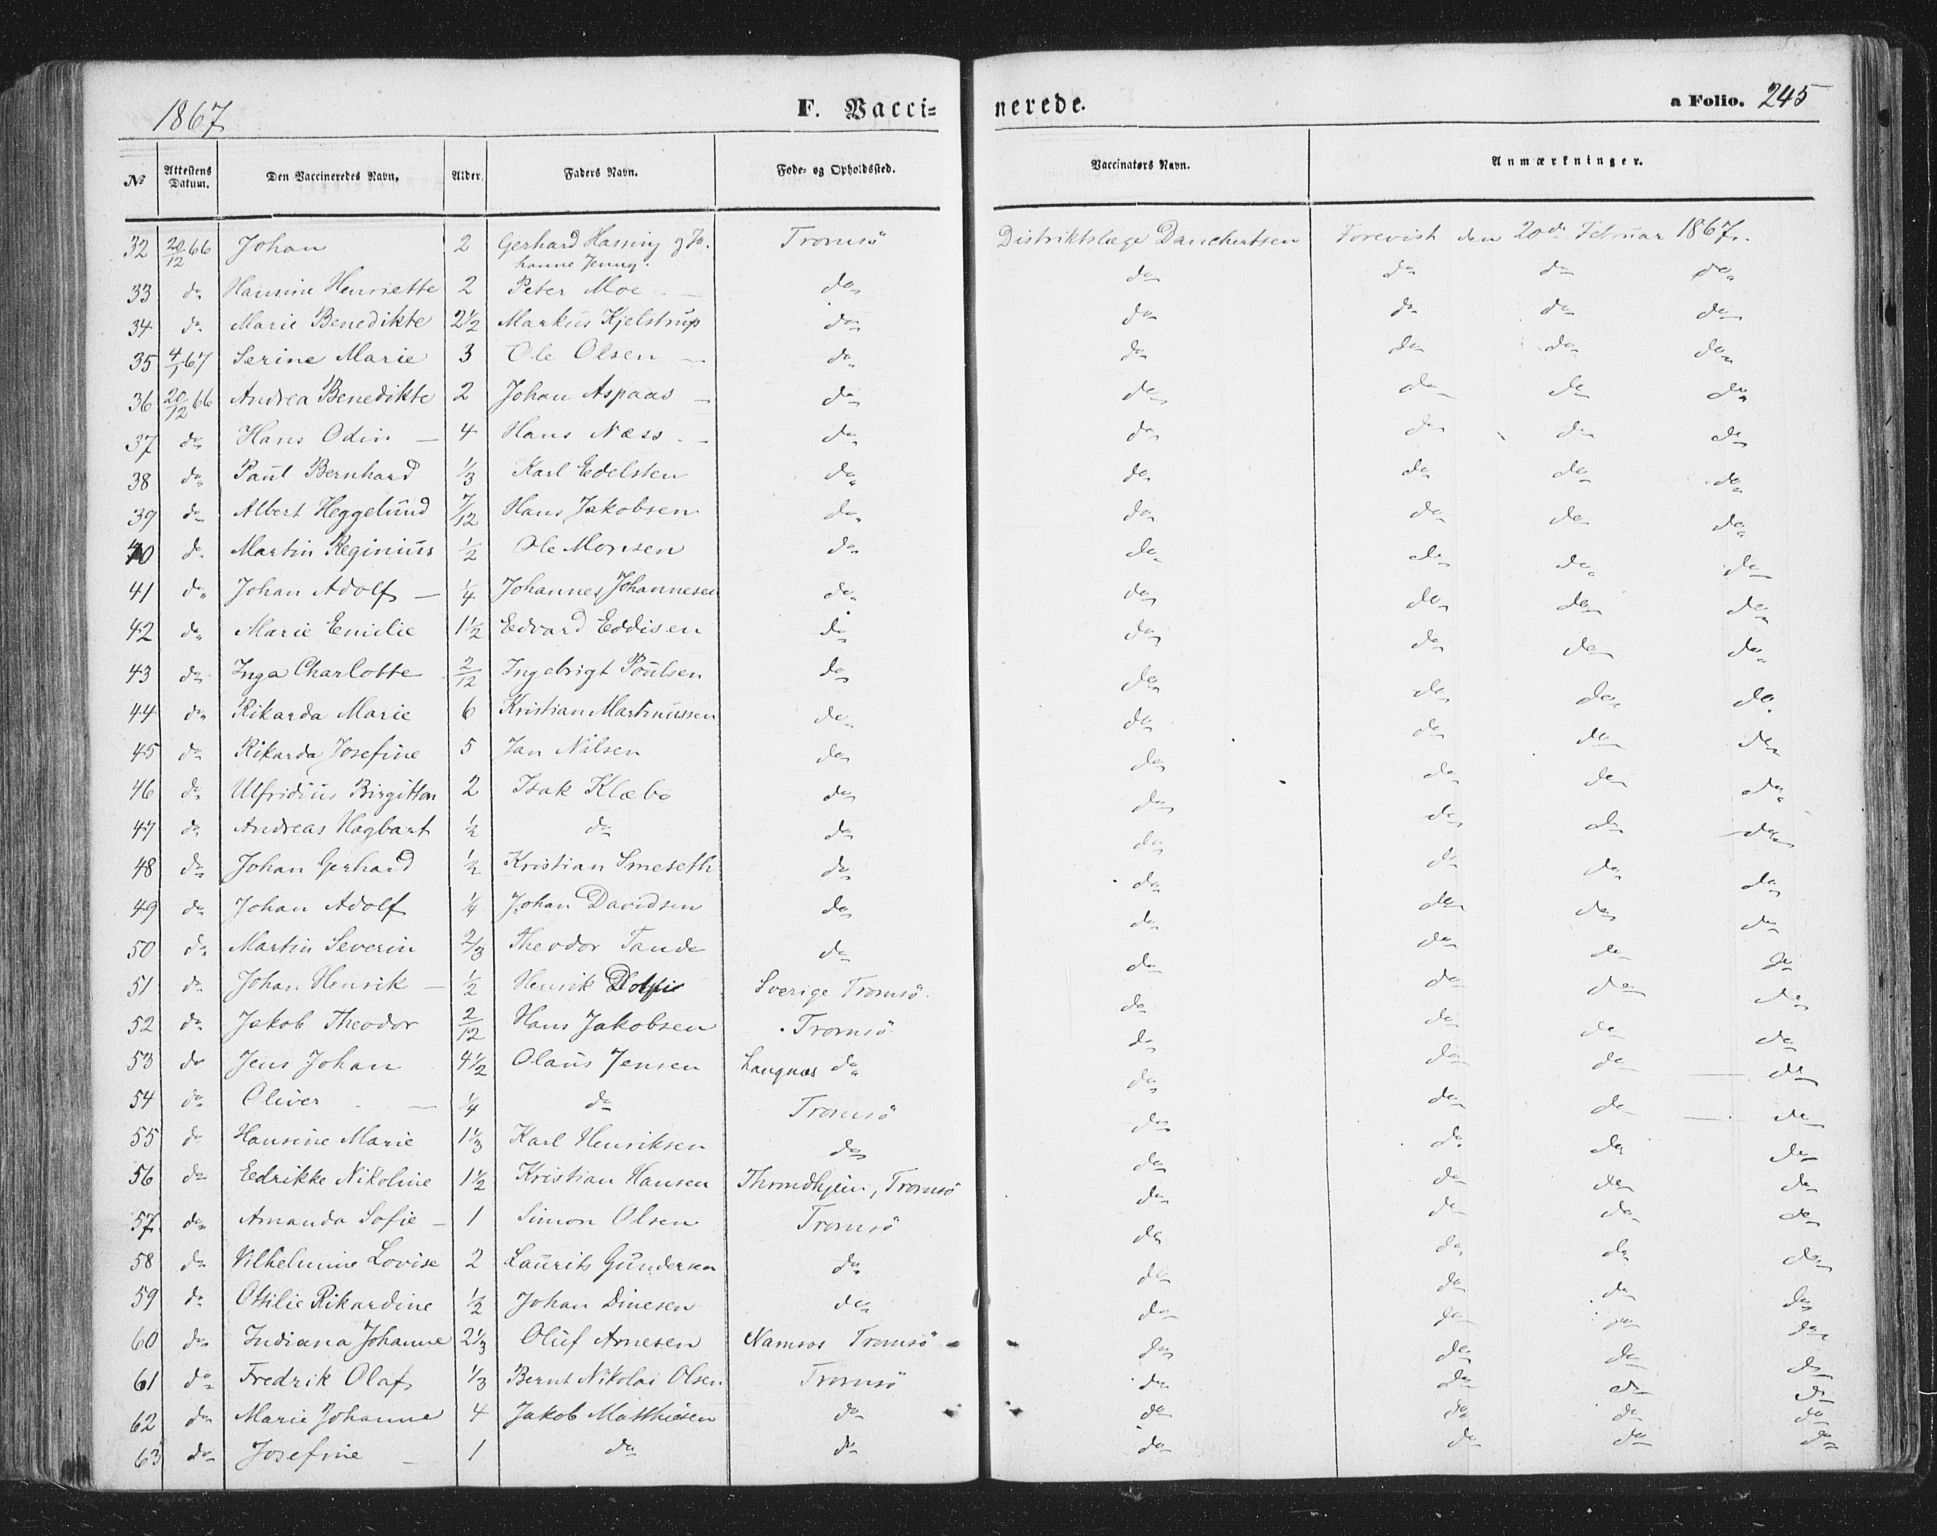 1867
F. Vacci-
nerede.
a Folio. 245
No Attestens Datum. Den Vaccineredes Navn. Alder. Faders Navn. Føde- og Opholdssted. Vaccinatørs Navn. Anmærkninger.
32 20/12 66 Johan 2 Gerhard Hassing g Jo. Tromsö Distriktslæge Danchertsen Forevist den 20de Februar 1867.
hanne Jenny.
33 do Hansine Henriette 2 Peter Moe do do do do do
34 do Marie Benedikte 2½ Markus Kjelstrup do do do do do
35 4/1 67 Serine Marie 3 Ole Olsen do do do do do
36 20/12 66 Andrea Benedikte 2 Johan Aspaas do do do do do
37 do Hans Odin 4 Hans Næss do do do do do
38 do Paul Bernhard 1/3 Karl Edelsten do do do do do
39 do Albert Heggelund 7/12 Hans Jakobsen do do do do do
40 do Martin Reginius ½ Ole Monsen do do do do do
41 do Johan Adolf ¼ Johannes Johannesen do do do do do
42 do Marie Emilie 1½ Edvard Eddisen do do do do do
43 do Inga Charlotte 2/12 Ingebrigt Poulsen do do do do do
44 do Rikarda Marie 6 Kristian Martinussen do do do do do
45 do Rikarda Josefine 5 Jan Nilsen do do do do do
46 do Ulfridius Birgitton 2 Isak Klæbo do do do do do
47 do Andreas Hagbart ½ do do do do do do
48 do Johan Gerhard ½ Kristian Smeseth do do do do do
49 do Johan Adolf ¼ Johan Davidsen do do do do do
50 do Martin Severin 2/3 Theodor Tande do do do do do
51 do Johan Henrik ½ Henrik Sverige Tromsö do do do do
52 do Jakob Theodor 2/12 Hans Jakobsen Tromsö do do do do
53 do Jens Johan 4½ Olaus Jensen Langnæs do do do do do
54 do Oliver ¼ do Tromsö do do do do
55 do Hansine Marie 1⅓ Karl Henriksen do do do do do
56 do Edrikke Nikoline 1½ Kristian Hansen Throndhjem, Tromsö do do do do
57 do Amanda Sofie 1 Simon Olsen Tromsö do do do do
58 do Vilhelmine Lovise 2 Laurits Gundersen do do do do do
59 do Otilie Rikardine ½ Johan Dinesen do do do do do
60 do Indiana Johanne 2⅓ Oluf Arnesen Namsos Tromsö do do do do
61 do Fredrik Olaf 1/3 Bernt Nikolai Olsen Tromsö do do do do
62 do Marie Johanne 4 Jakob Matthisen do do do do do
63 do Josefine 1 do do do do do do